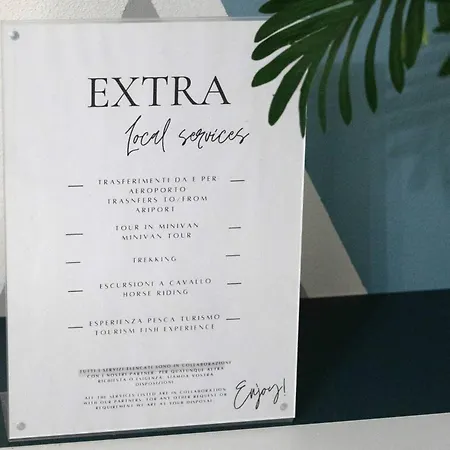 EXTRA
Local services
TRASFERIMENTI DA E PER
AEROPORTO
TRASNFERS TO/FROM
ARIPORT
TOUR IN MINIVAN
MINIVAN TOUR
TREKKING
ESCURSIONI A CAVALLO
HORSE RIDING
ESPERIENZA PESCA TURISMO
TOURISM FISH EXPERIENCE
TUTTI I SERVIZI ELENCATI SONO IN COLLABORAZIONE
CON I NOSTRI PARTNER. PER QUALUNQUE ALTRA
RICHIESTA O ESIGENZA, SIAMO A VOSTRA
DISPOSIZIONE.
ALL THE SERVICES LISTED ARE IN COLLABORATION
WITH OUR PARTNERS. FOR ANY OTHER REQUEST OR
REQUIREMENT WE ARE AT YOUR DISPOSAL.
Enjoy!